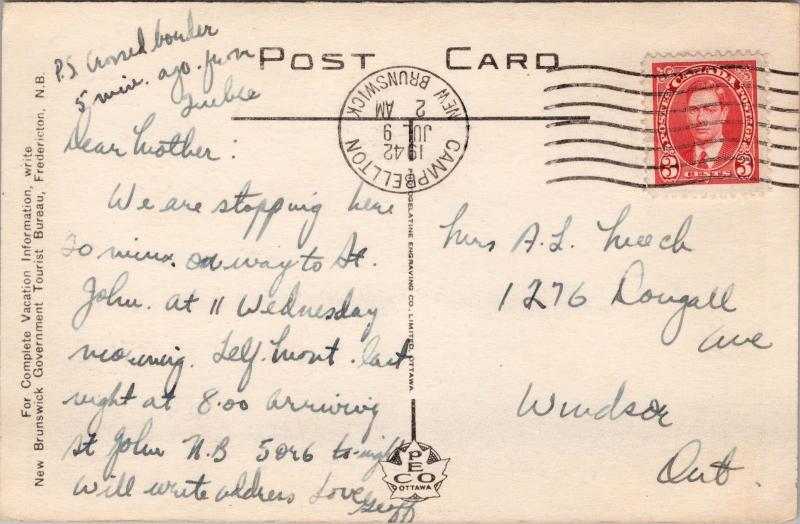 POST CARD
P.S. Crossed border
5 min. ago from
Quebec
Dear Mother:
We are stopping here
20 min. on way to St.
John. at 11 Wednesday
morning. Left Mont. last
night at 8.00 arriving
St John N.B 5 or 6 to-night
Will write address Love
Geoff
CAMPBELLTON
NEW BRUNSWICK
2 AM
JUL 9
1942
POSTES CANADA POSTAGE
3 CENTS 3
Mrs A.L. Meech
1276 Dougall
Ave
Windsor
Ont.
For Complete Vacation Information, write
New Brunswick Government Tourist Bureau, Fredericton, N.B.
PHOTOGELATINE ENGRAVING CO., LIMITED, OTTAWA
PECO
OTTAWA